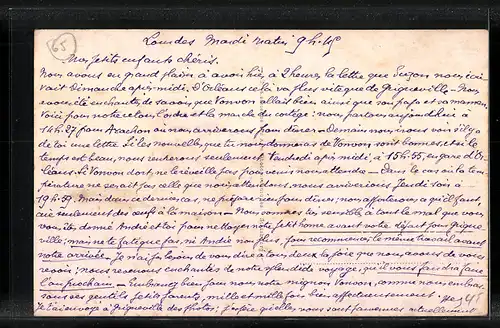 65
Lourdes Mardi matin 9h.15
Mes petits enfants chéris.
Nous avons eu grand plaisir à avoir hier à 2 heures la lettre que Suzon nous écri-
vait Dimanche après midi. D'Orléans cela va plus vite que de Grigneville - Nous
avons été enchantés de savoir que Vonvon allait bien ainsi que son papa et sa maman.
Voici pour notre retour l'ordre et la marche du cortège : nous partons aujourd'hui à
14h27 pour Arcachon où nous arriverons pour dîner - Demain nous irons voir s'il y a
de toi une lettre. Si les nouvelles que tu nous donneras de Vonvon sont bonnes et si le
temps est beau, nous rentrerons seulement Vendredi après midi à 15h.55, en gare d'Or-
léans. Si Vonvon dort ne le réveille pas pour venir nous attendre - Dans le cas où la tem-
pérature ne serait pas celle que nous attendons, nous arriverions Jeudi soir à
19h.59. Mais dans ce dernier cas, ne prépare rien pour dîner, nous apporterons ce qu'il faut,
avec seulement des œufs à la maison - Nous sommes très sensibles à tout le mal que vous
vous êtes donné André et toi pour nettoyer notre petit home avant votre départ pour Grigne-
ville; mais ne te fatigue pas, ni André non plus, pour recommencer le même travail avant
notre arrivée. Je n'ai pas besoin de vous dire à tous deux la joie que nous avons de vous
revoir; nous revenons enchantés de notre splendide voyage, qu'il vous faudra faire
l'an prochain - Embrassez bien pour nous notre mignon Vonvon, comme nous embras-
sons ses gentils petits parents, mille et mille fois bien affectueusement.
J'ai envoyé à Grigneville des photos; j'espère qu'elles nous sont parvenues